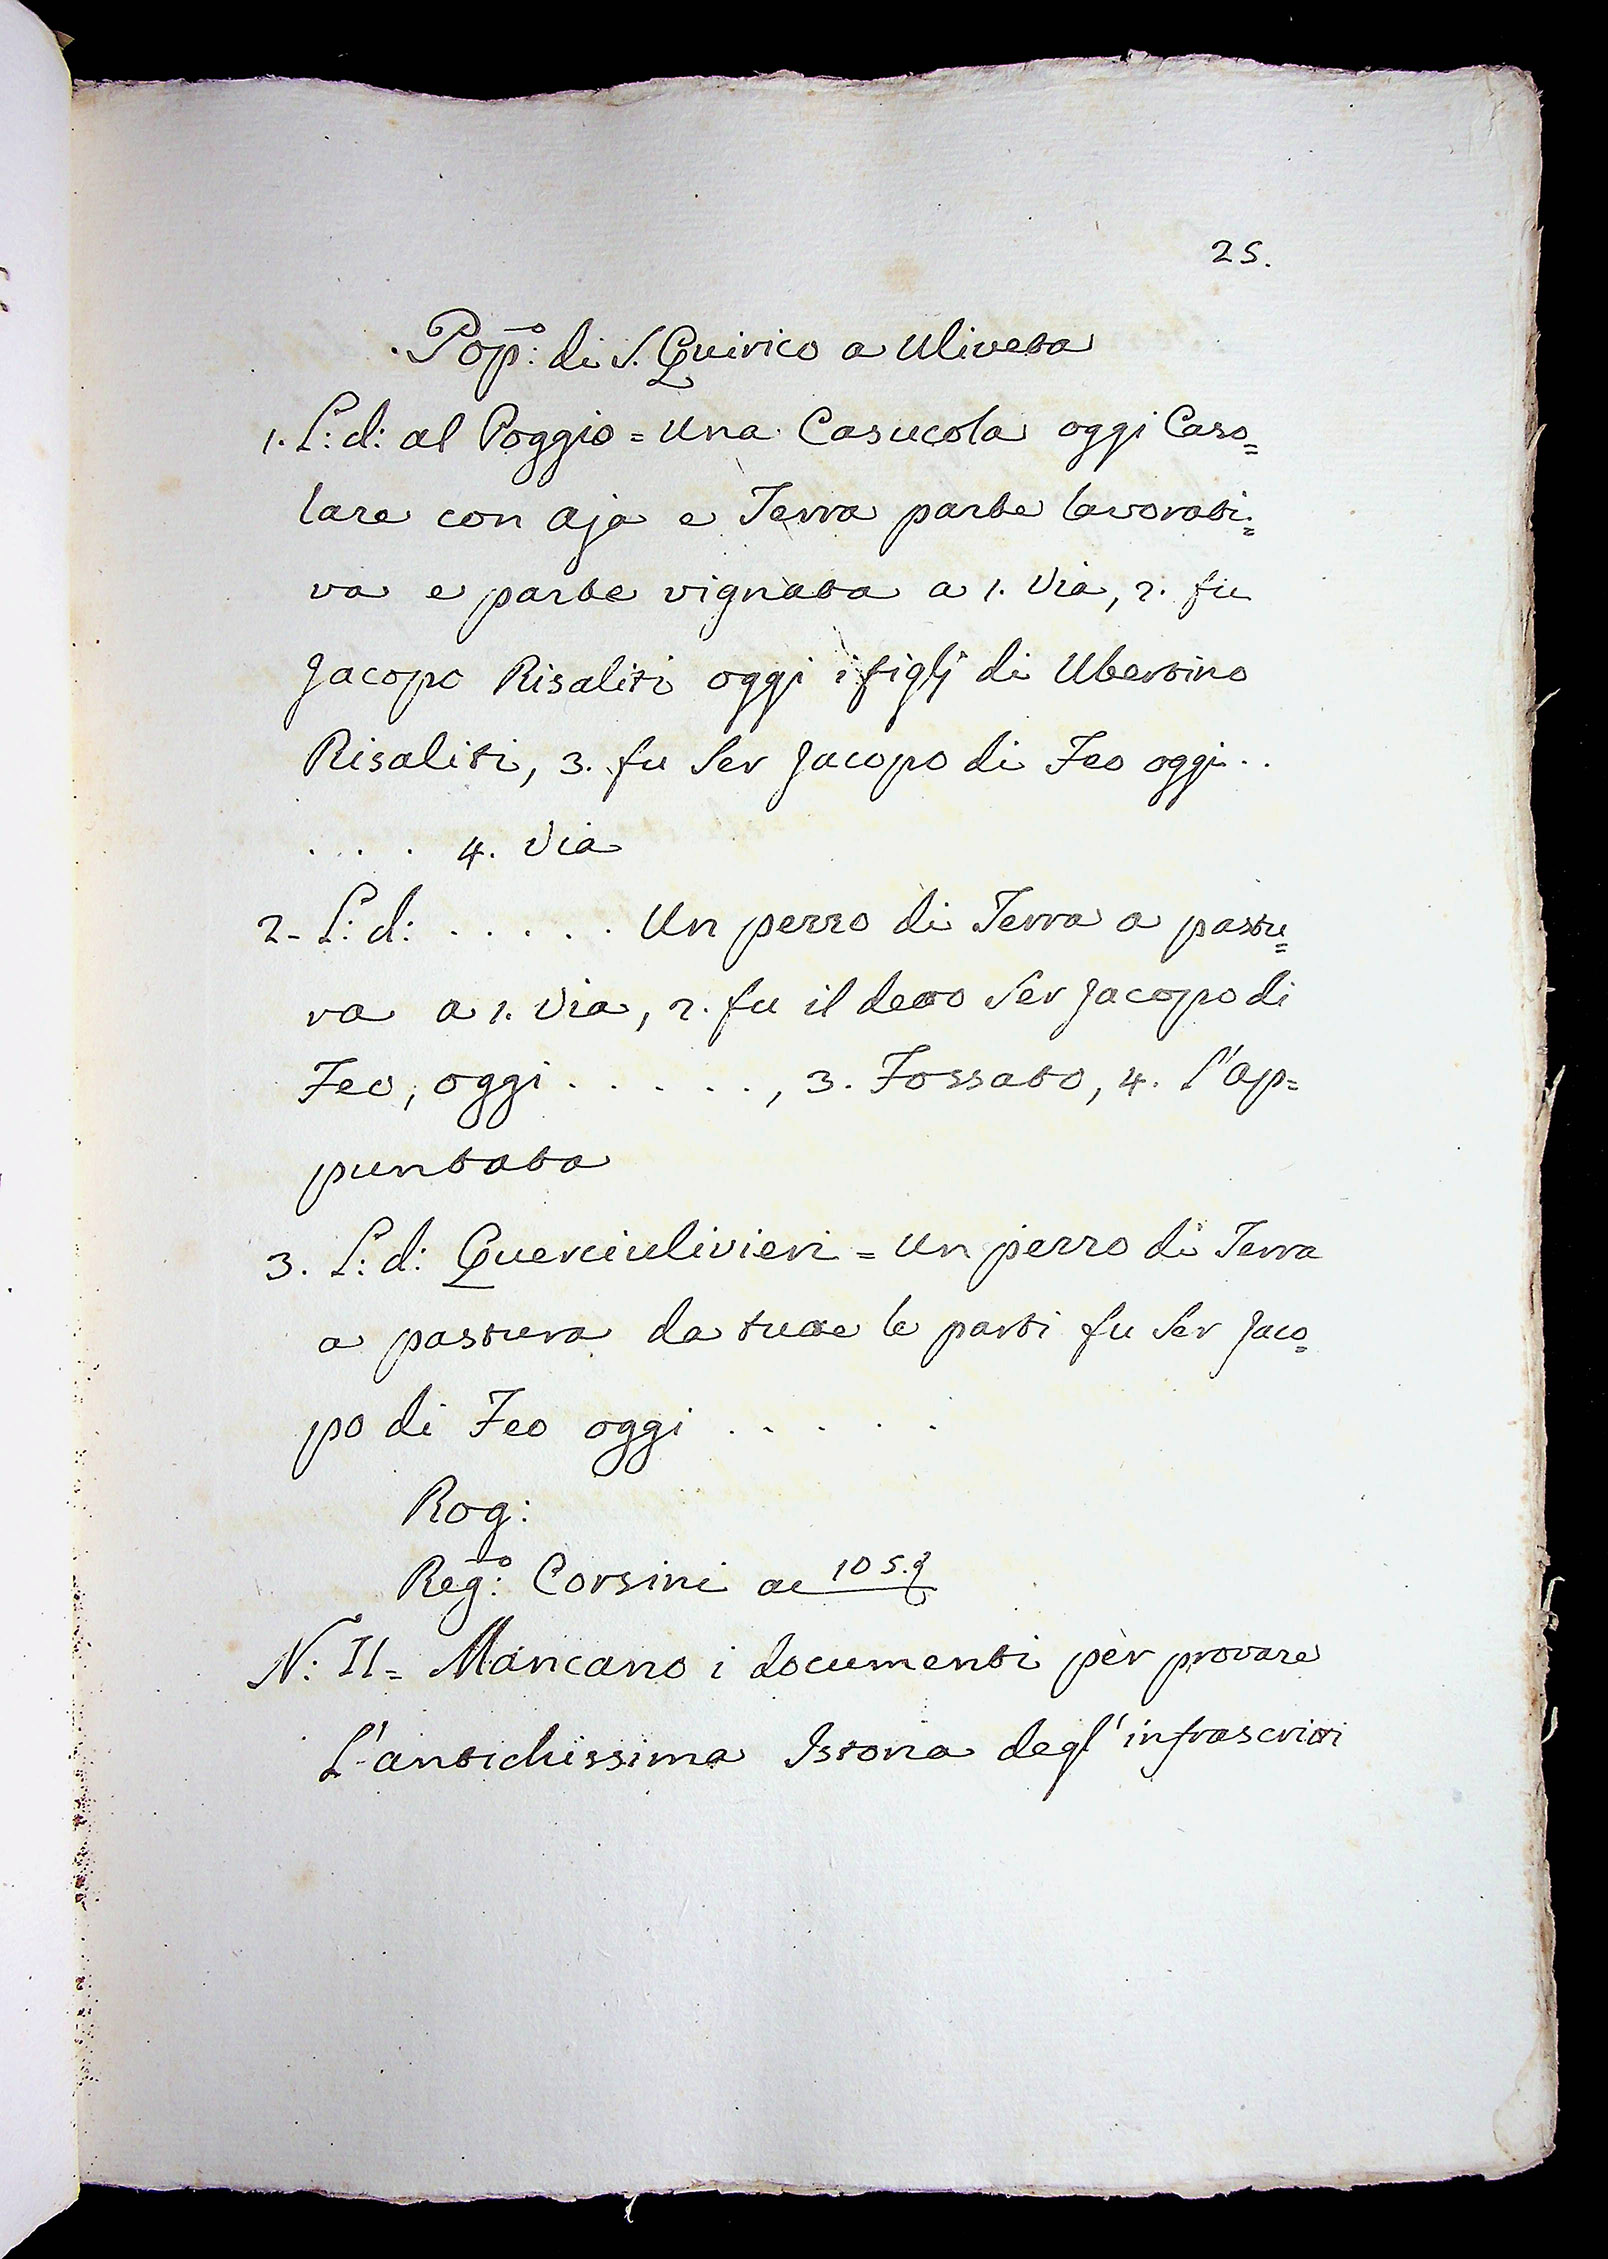 25.
Pop:º di S. Quirico a Uliveta
1. L: d: al Poggio = Una Casucola oggi Caso=
lare con aja e Terra parte lavorati=
va e parte vignata a 1. Via, 2. fu
Jacopo Risaliti oggi i figlj di Ubertino
Risaliti, 3. fu Ser Jacopo di Feo oggi . .
. . . 4. Via
2- L: d: . . . . . Un pezzo di Terra a pastu=
ra a 1. Via, 2. fu il detto Ser Jacopo di
Feo, oggi . . . . . , 3. Fossato, 4. l'ap=
puntata
3. L: d: Querciulivieri = Un pezzo di Terra
a pastura da tutte le parti fu Ser Jaco=
po di Feo oggi . . . . .
Rog:
Reg:º Corsini ac 105.
N: II = Mancano i documenti per provare
L'antichissima Istoria degl' infrascritti